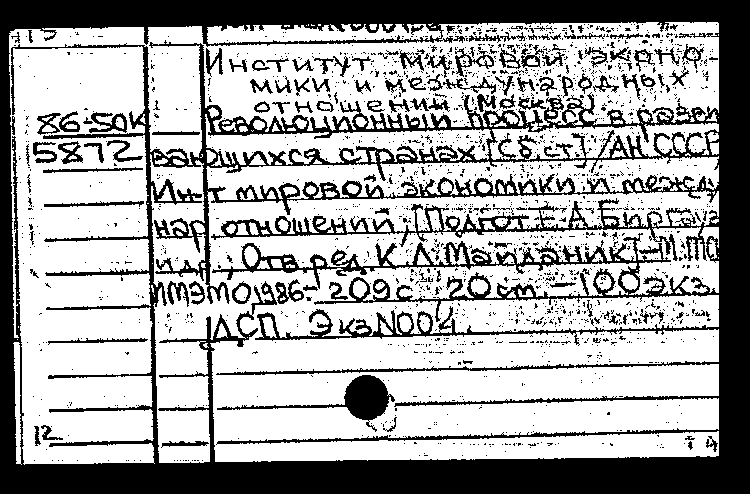 Институт мировой эконо-
мики и международных
отношений (Москва).
86-50К Революционный процесс в разви
5872 вающихся странах [Сб. ст.] / АН СССР
Ин-т мировой экономики и между
нар отношений; [Подгот. Е. А. Биргауз
и др.; Отв. ред. К. Л. Майданик] - М:
ИМЭМО, 1986.- 209 с 20 см. - 100 экз.
ДСП. Экз N004.
12